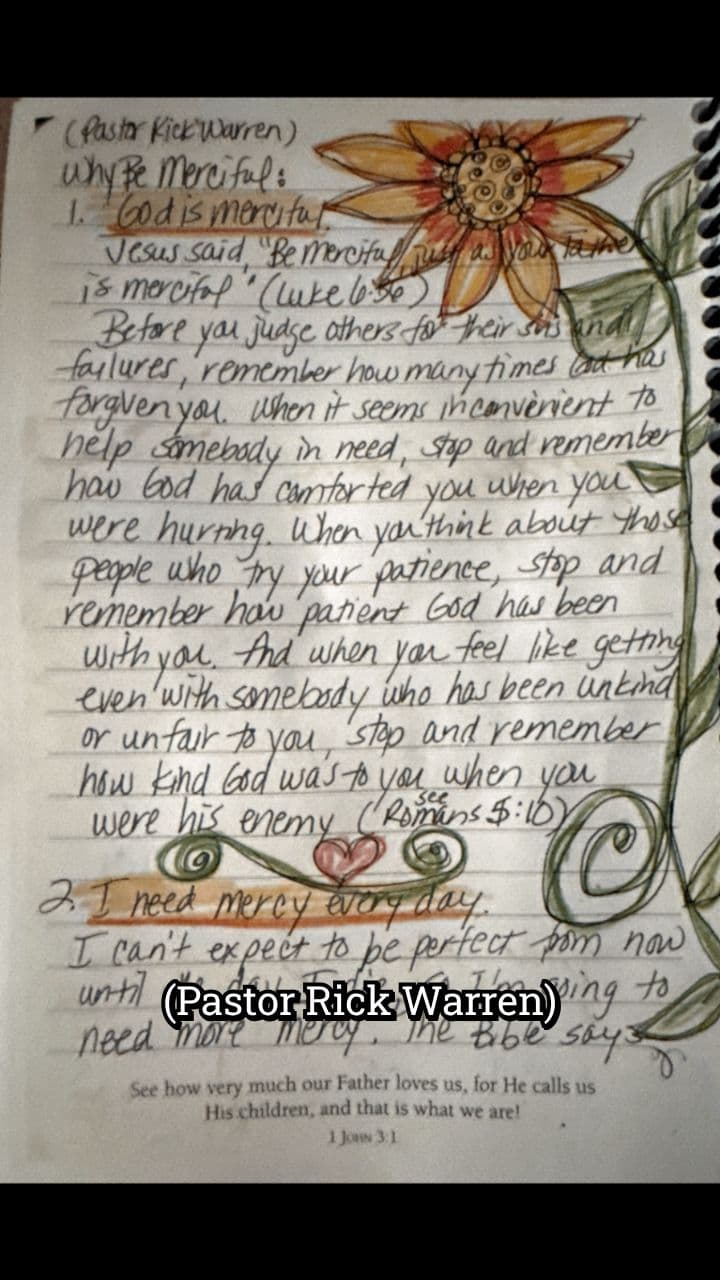 (Pastor Rick Warren)
Why Be Merciful:
1. God is merciful.
Jesus said, "Be merciful, just as your Father
is merciful" (Luke 6:36)
Before you judge others for their sins and
failures, remember how many times God has
forgiven you. When it seems inconvenient to
help somebody in need, stop and remember
how God has comforted you when you
were hurting. When you think about those
people who try your patience, stop and
remember how patient God has been
with you. And when you feel like getting
even with somebody who has been unkind
or unfair to you, stop and remember
how kind God was to you when you
were his enemy (see Romans 5:10)
2. I need mercy every day.
I can't expect to be perfect from now
until day I'm going to
(Pastor Rick Warren)
need more mercy. The Bible says
See how very much our Father loves us, for He calls us
His children, and that is what we are!
1 John 3:1